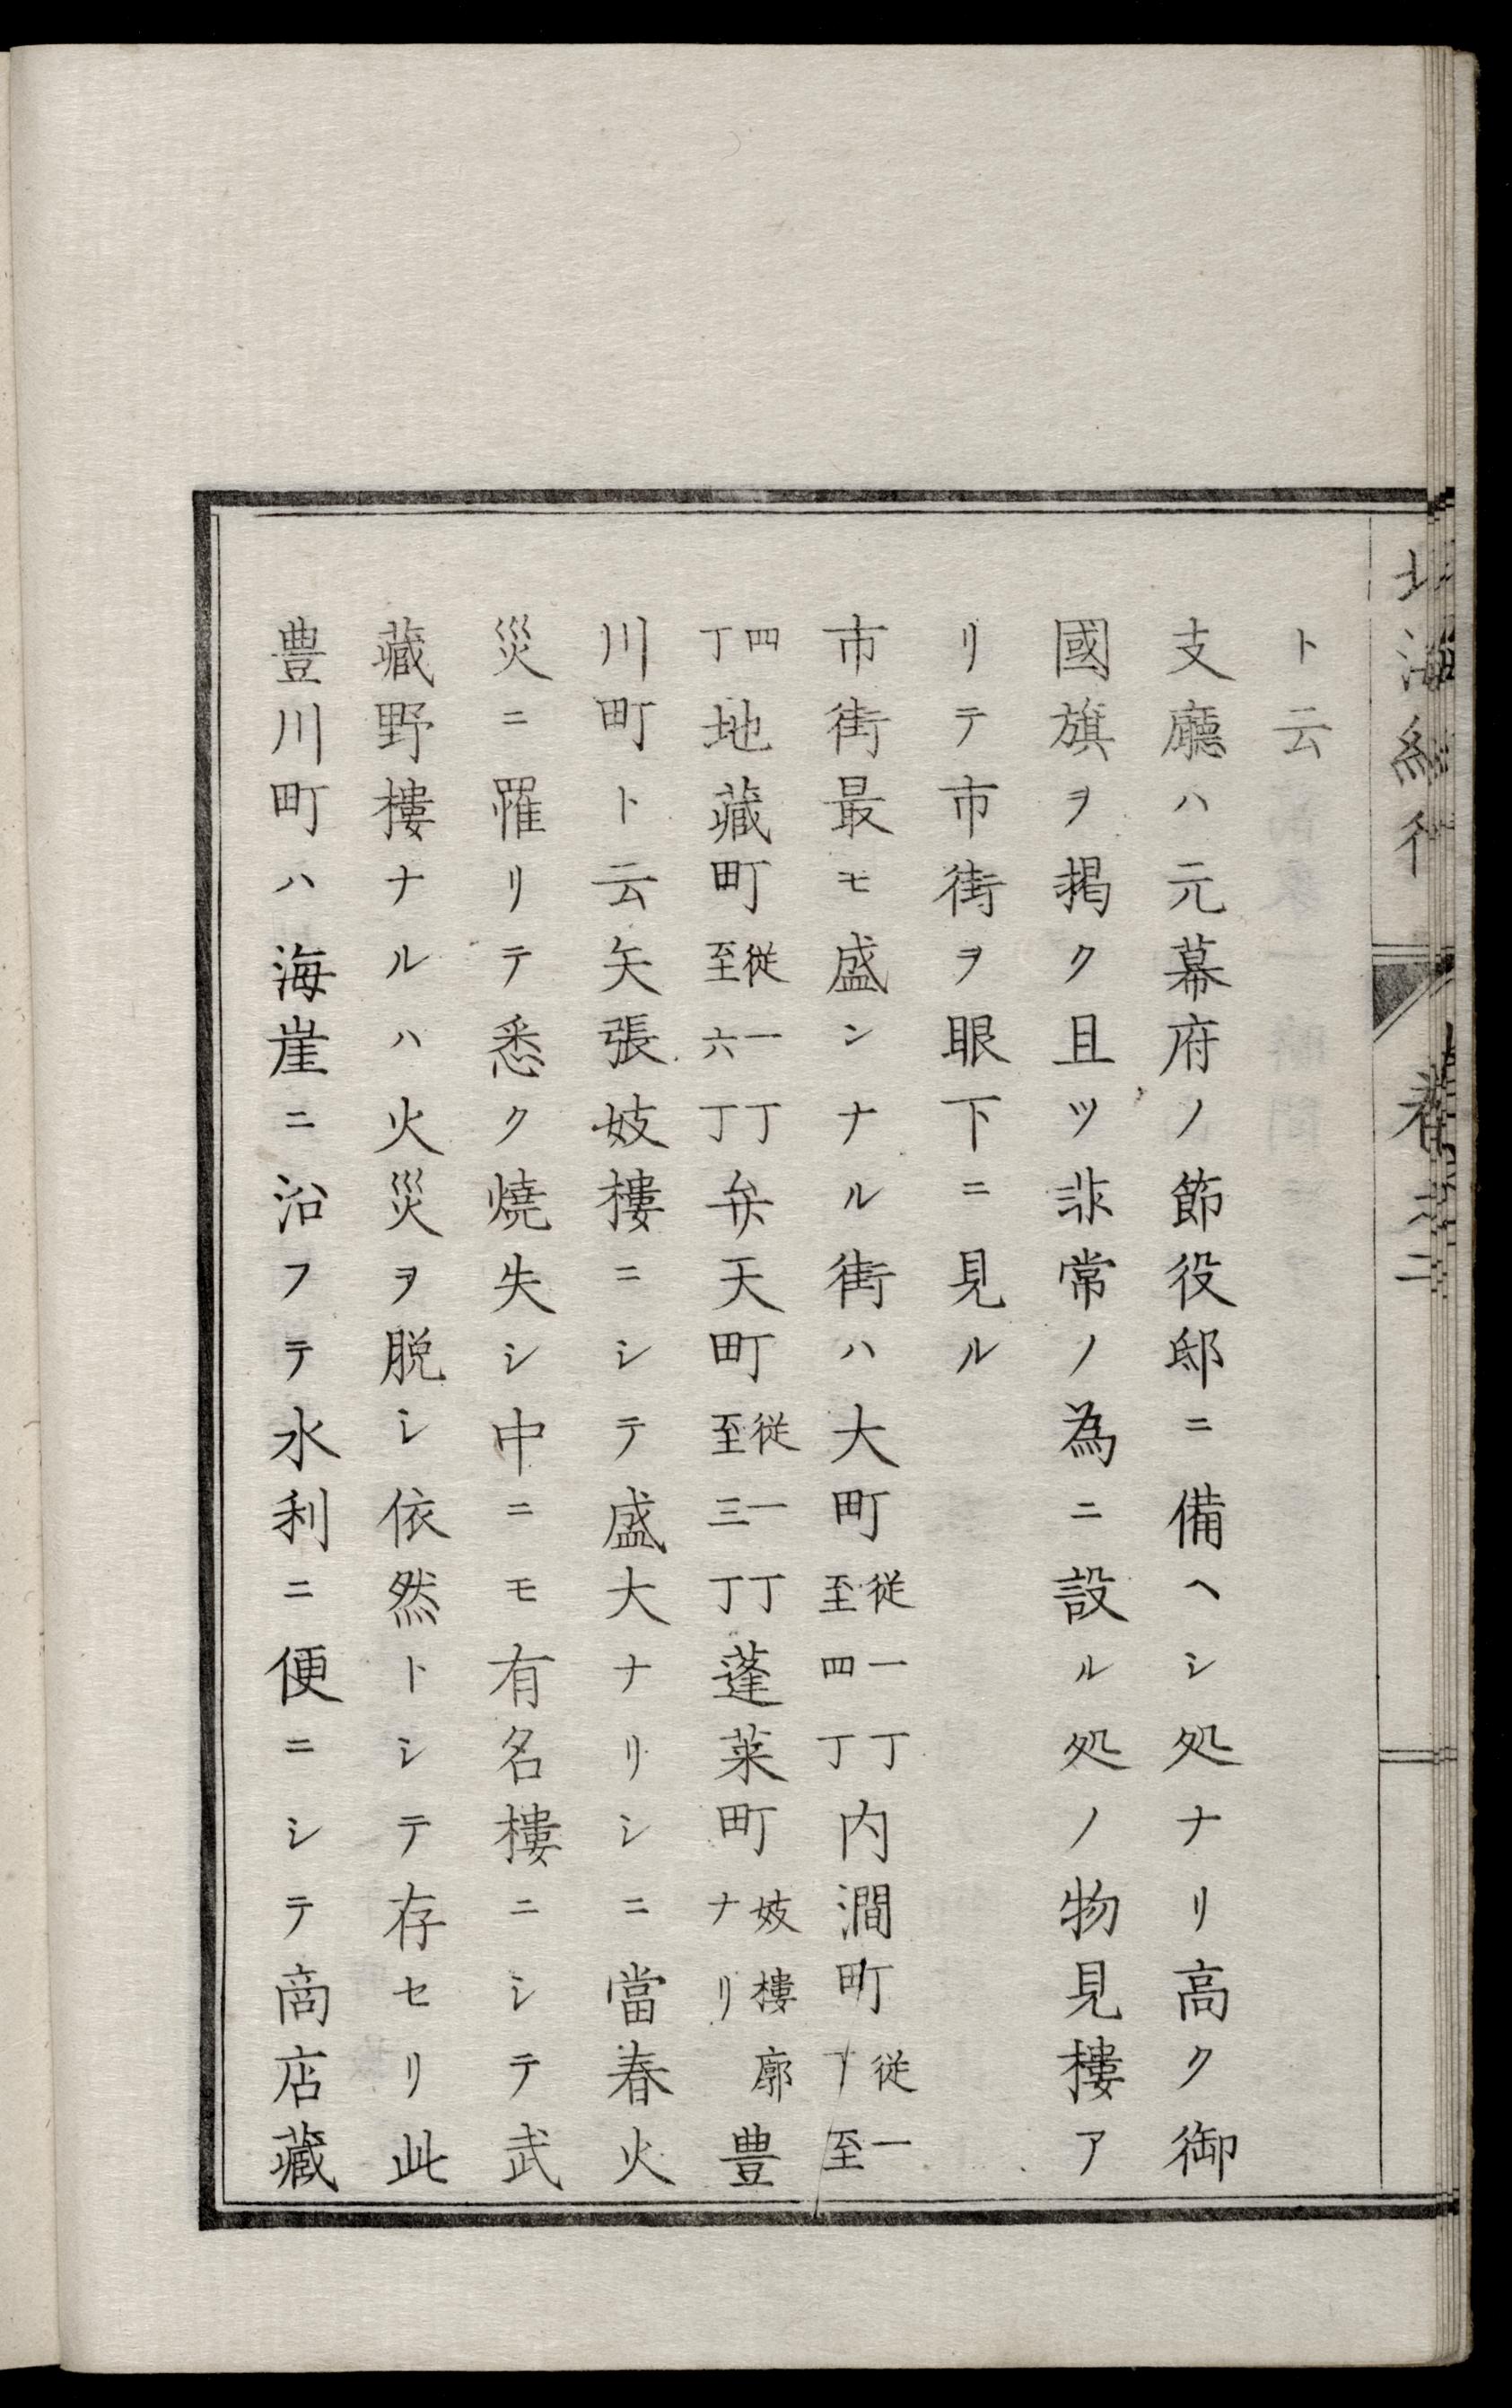 北海紀行 卷之二
ト云
支廳ハ元幕府ノ節役邸ニ備ヘシ処ナリ高ク御
國旗ヲ掲ク且ツ非常ノ為ニ設ル処ノ物見樓ア
リテ市街ヲ眼下ニ見ル
市街最モ盛ンナル街ハ大町従一丁至四丁内澗町従一丁至
四丁地藏町従一丁至六丁弁天町従一丁至三丁蓬莱町妓樓廓ナリ豊
川町ト云矢張妓樓ニシテ盛大ナリシニ當春火
災ニ罹リテ悉ク燒失シ中ニモ有名樓ニシテ武
藏野樓ナルハ火災ヲ脱シ依然トシテ存セリ此
豊川町ハ海崖ニ沿フテ水利ニ便ニシテ商店藏